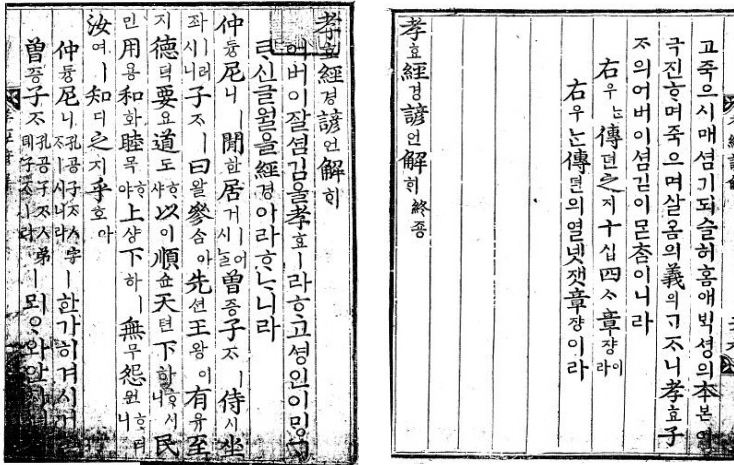 孝효經경諺언解ᄒᆡ
어버이잘셤김을孝효ㅣ라ᄒᆞ고셩인이ᄆᆡᆼᄀᆞ
ᄅᆞ신글월을經경이라ᄒᆞᄂᆞ니라
仲듕尼니ㅣ閒한居거ㅣ어시ᄂᆞᆯ曾증子ᄌᆞㅣ侍시坐
좌ㅣ러시니子ᄌᆞㅣ曰왈參ᄉᆞᆷ아先션王왕이有유至
지德덕要요道도ᄒᆞ샤以이順슌天텬下하ᄒᆞ시니民
민用용和화睦목ᄒᆞ야上샹下하ㅣ無무怨원ᄒᆞ니
汝여ㅣ知디之지乎호아
仲듕尼니孔공子ᄌᆞㅅ字ᄌᆞㅣ시니라ㅣ한가히겨시거
曾증子ᄌᆞ孔공子ᄌᆞㅅ弟뎨子ᄌᆞㅣ라ㅣ뫼ᄋᆞ와안
고죽으시매셤기되슬허홈애ᄇᆡᆨ셩의本본
극진ᄒᆞ며죽으며살옴의義의ᄀᆞᄌᆞ니孝효子
ᄌᆞ의어버이셤김이ᄆᆞᄎᆞᆷ이니라
右우ᄂᆞᆫ傳뎐之지十십四ᄉᆞ章쟝이라
右우ᄂᆞᆫ傳뎐의열넷잿章쟝이라
孝효經경諺언解ᄒᆡ終죵